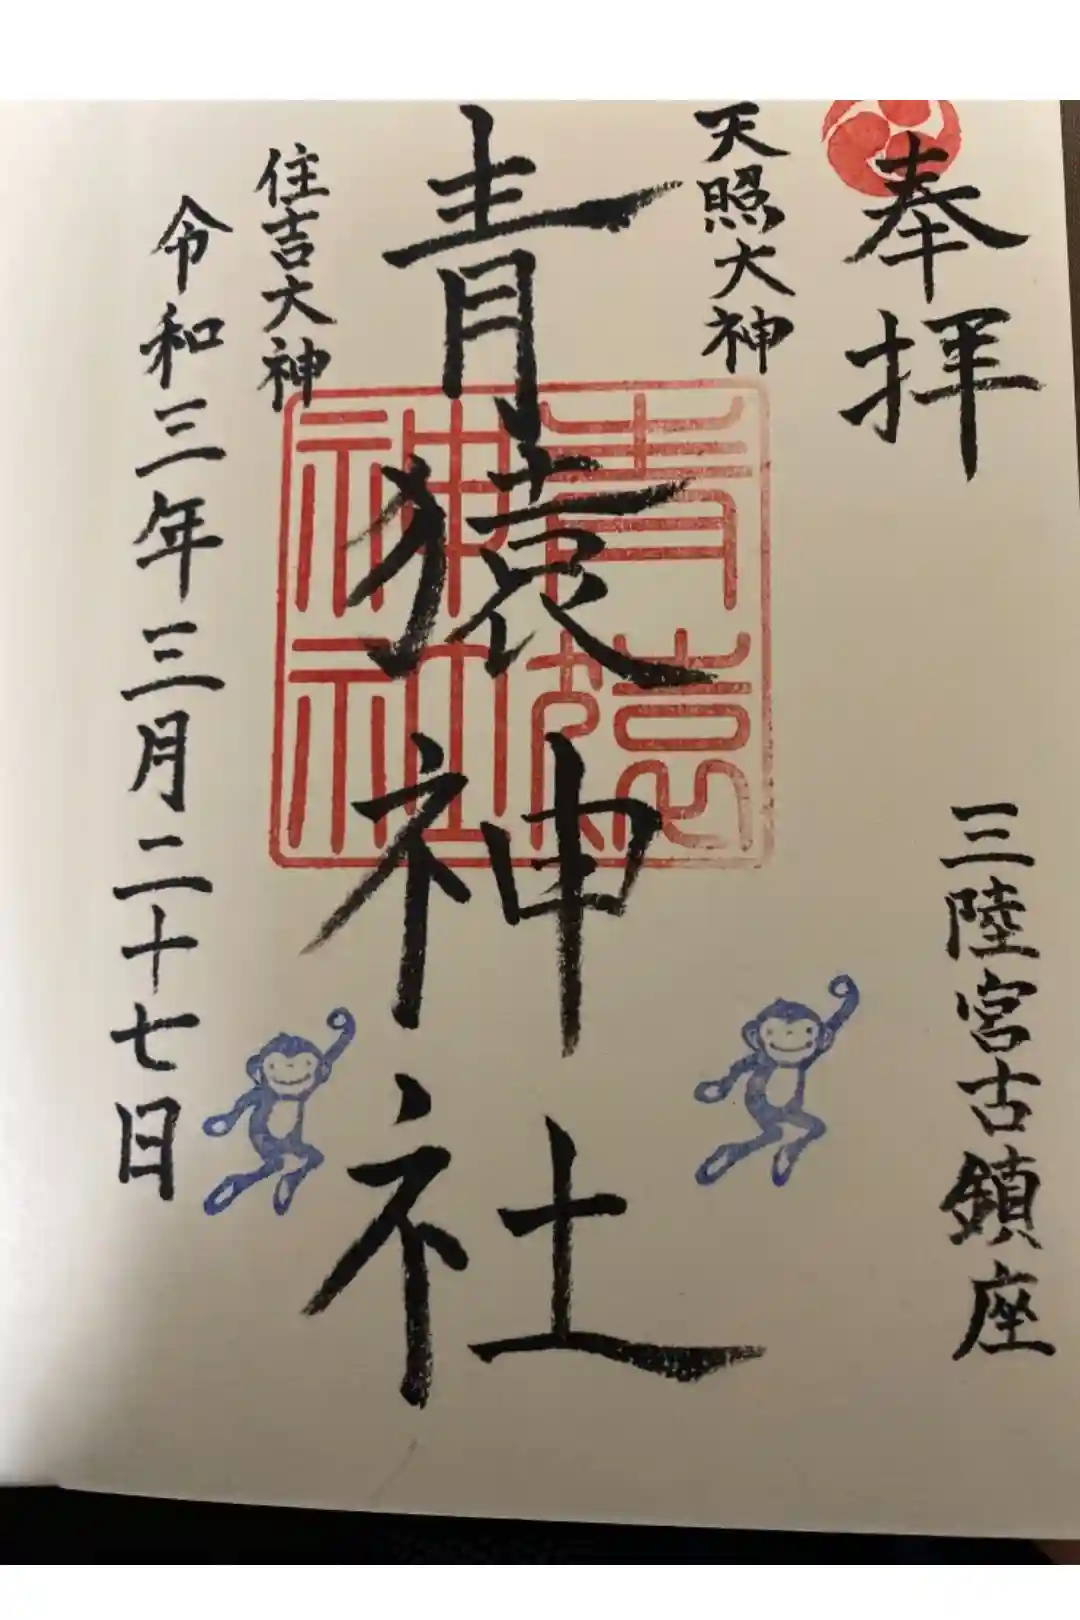 奉拝
三陸宮古鎮座
天照大神
青猿神社
青猿神社
住吉大神
令和三年三月二十七日